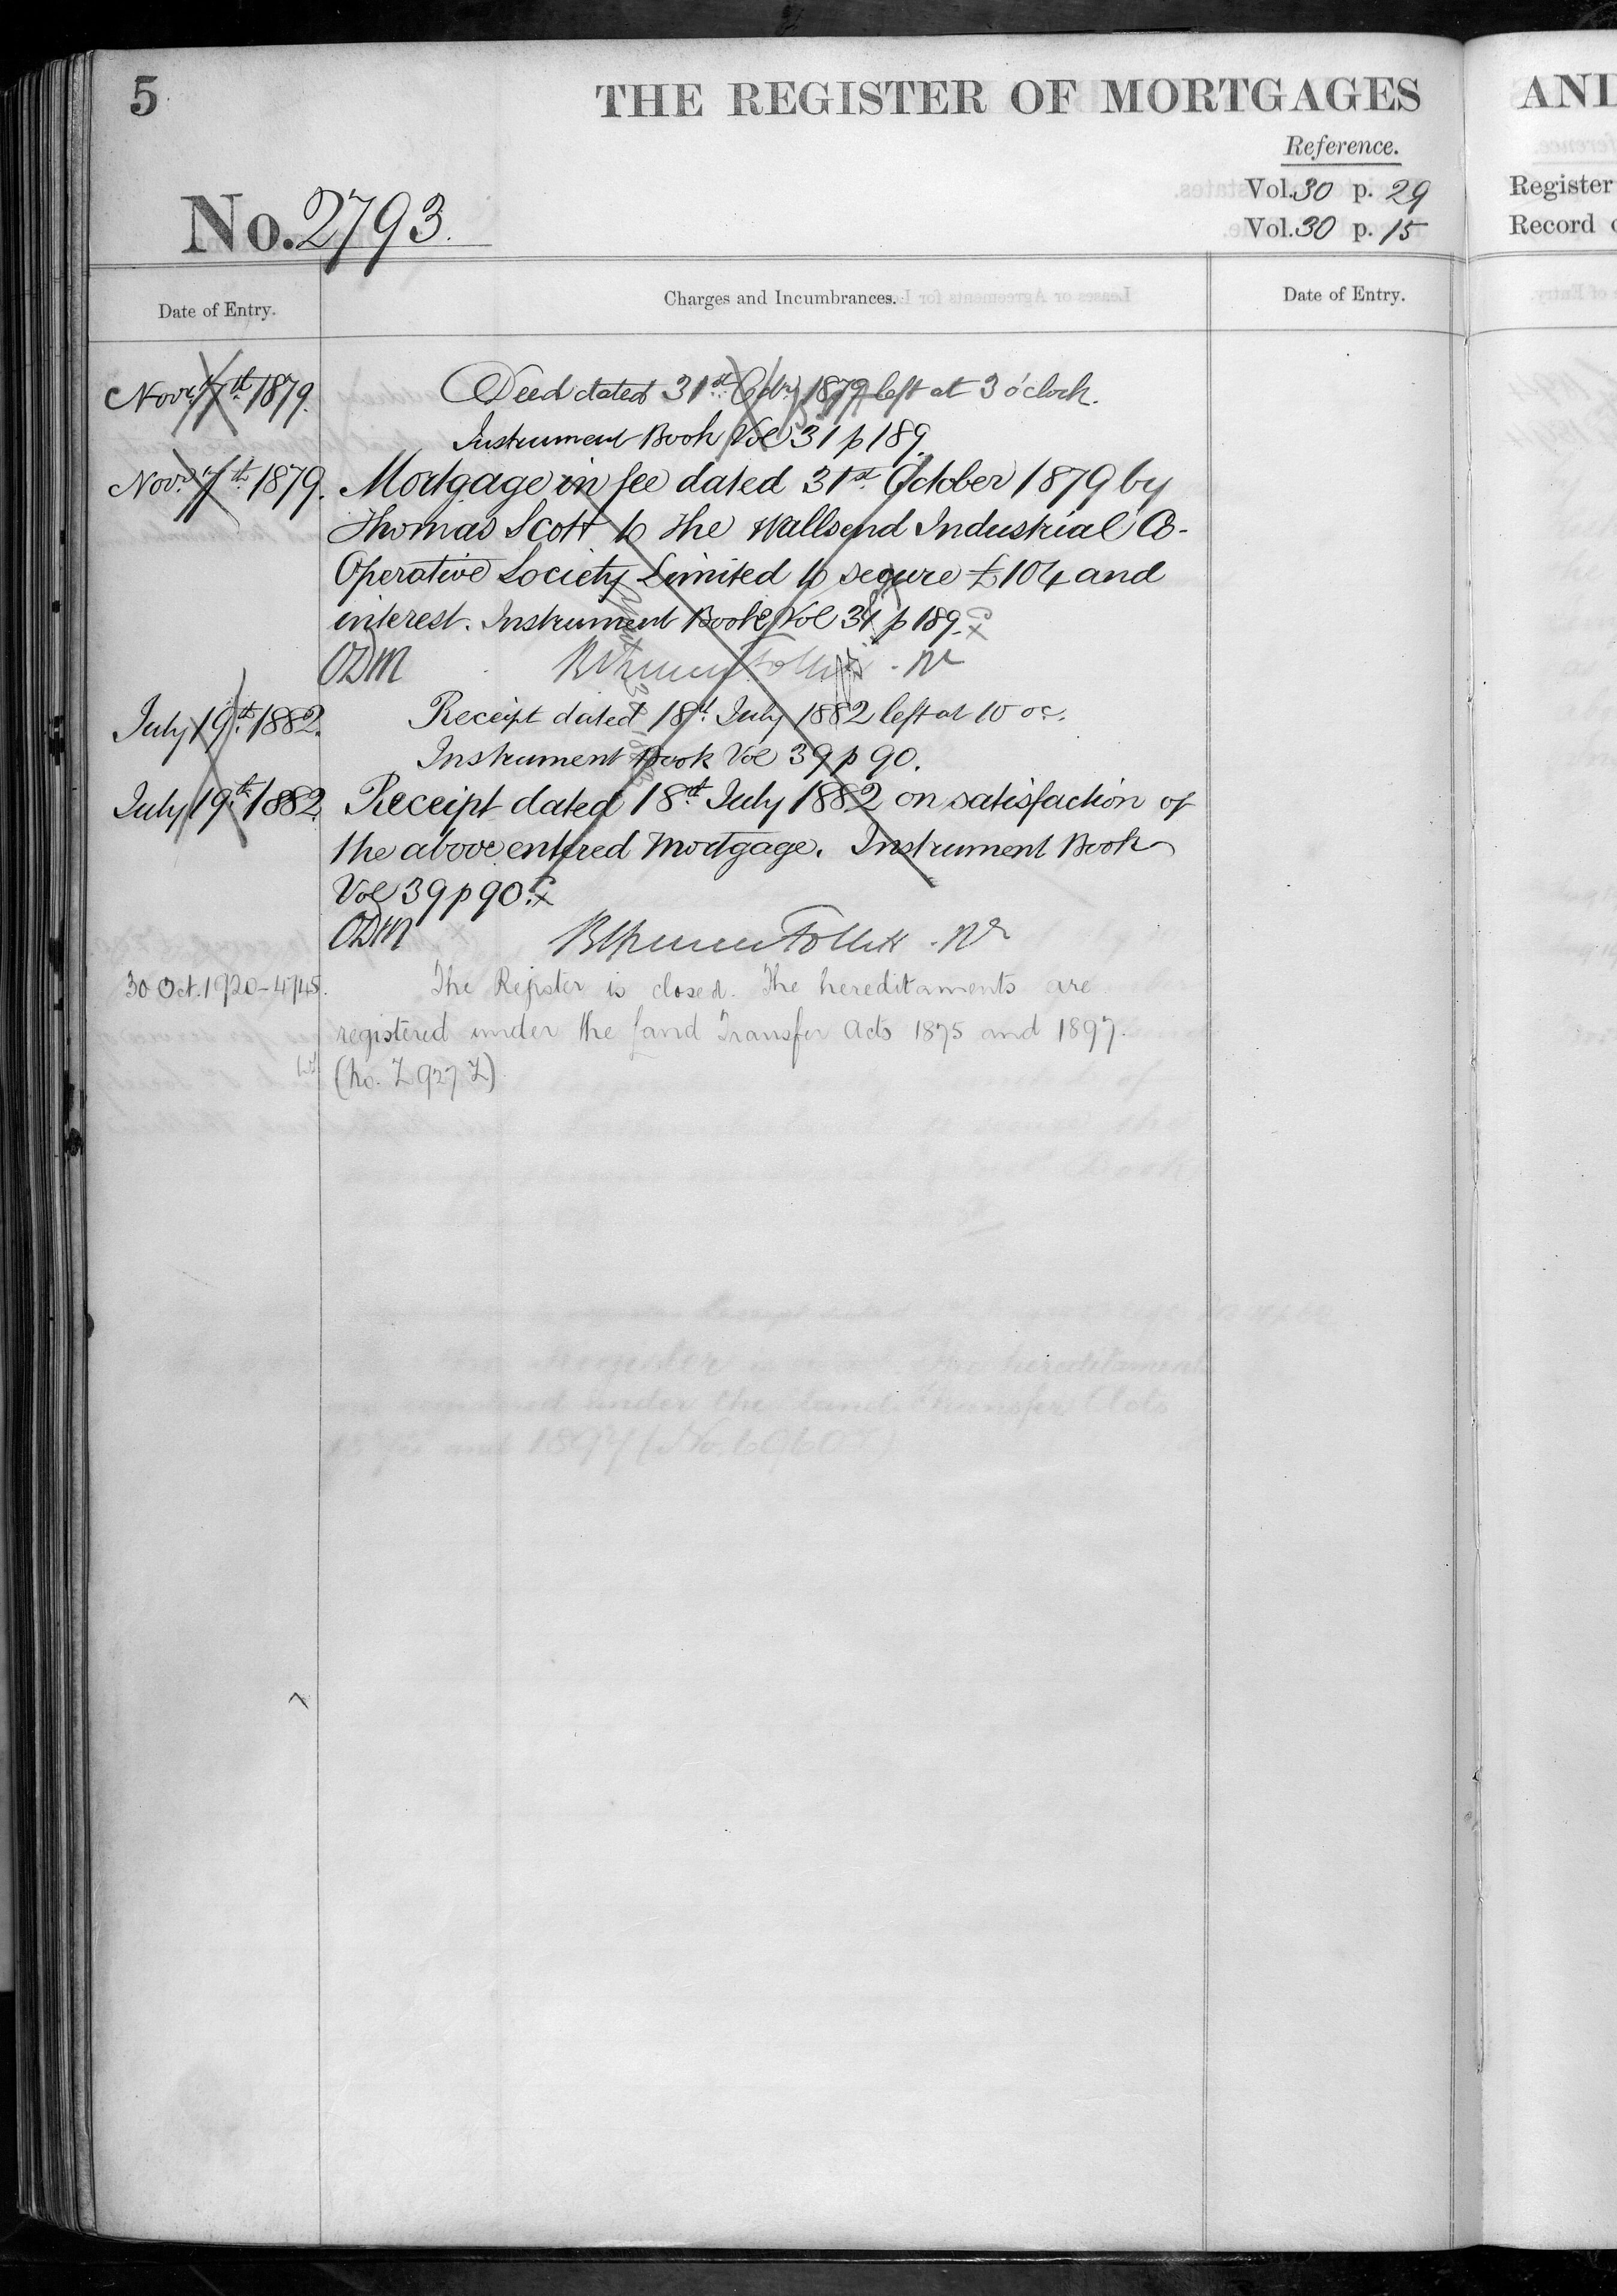 5
THE REGISTER OF MORTGAGES
Reference.
Vol. 30 p. 29
Vol. 30 p. 15
No. 2793.
Date of Entry.
Charges and Incumbrances.
Date of Entry.
Novr. 7th 1879.
Deed dated 31st Octr. 1879 left at 3 o'clock.
Instrument Book Vol 31 p 189.
Novr. 7th 1879.
Mortgage in fee dated 31st October 1879 by
Thomas Scott to the Wallsend Industrial Co-
Operative Society Limited to secure £104 and
interest. Instrument Book Vol 31 p 189.
ODM
July 19th 1882.
Receipt dated 18th July 1882 left at 10 oc.
Instrument Book Vol 39 p 90.
July 19th 1882
Receipt dated 18th July 1882 on satisfaction of
the above entered Mortgage. Instrument Book
Vol 39 p 90.
ODM
30 Oct. 1920-4745.
The Register is closed. The hereditaments are
registered under the Land Transfer Acts 1875 and 1897.
(No. Z 927 Z)
AND
Register
Record